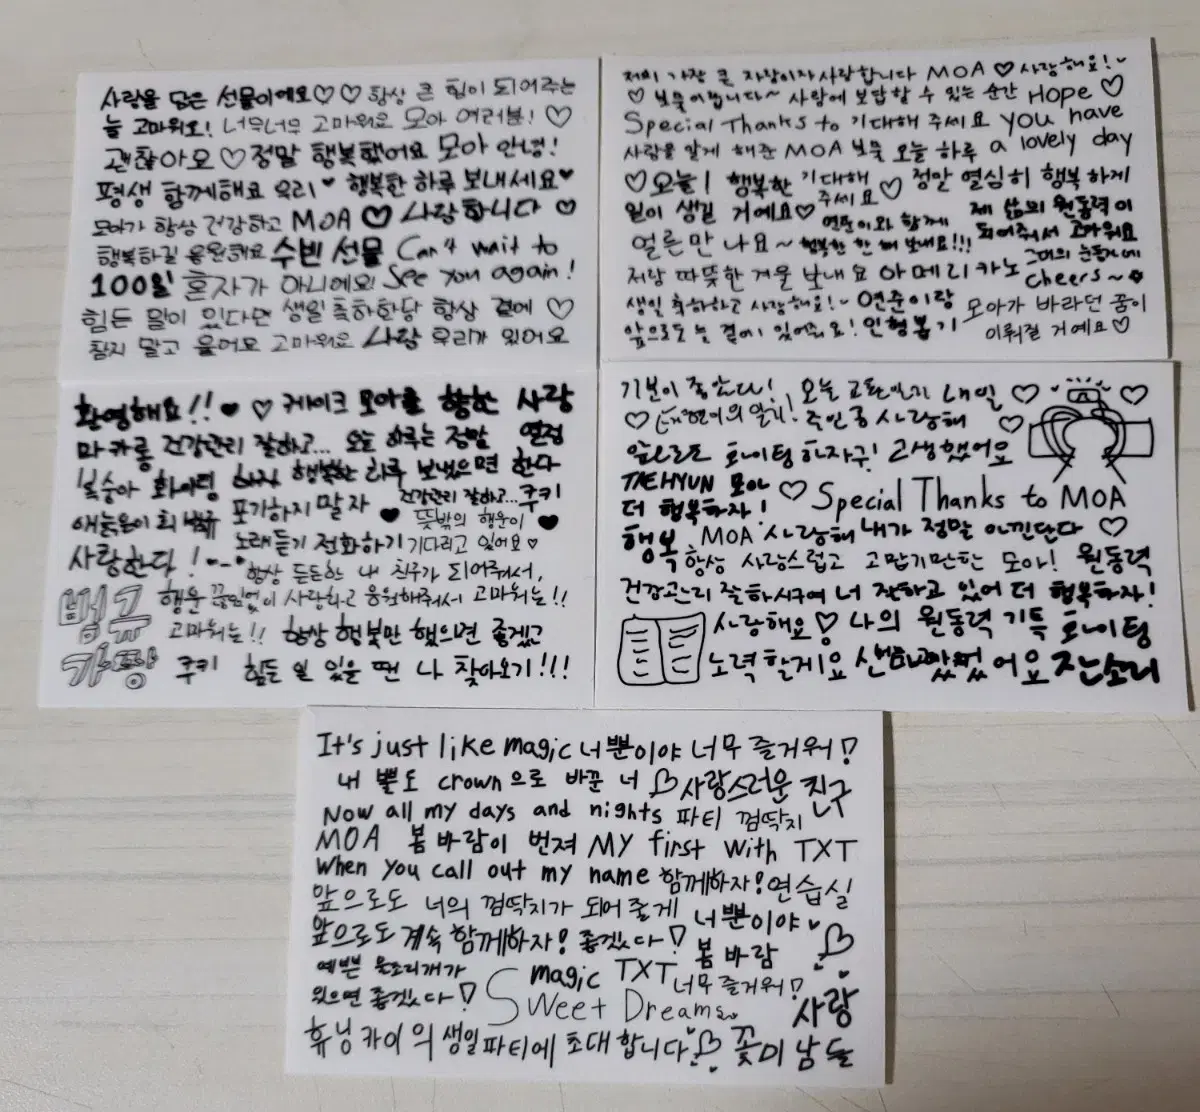 사랑을 담은 선물이에요♡♡ 항상 큰 힘이 되어주는
늘 고마워요! 너무너무 고마워요 모아 여러분! ♡
괜찮아요 ♡ 정말 행복했어요 모아 안녕!
평생 함께해요 우리♥ 행복한 하루 보내세요♥
모아가 항상 건강하고 MOA ♡ 사랑합니다 ♡
행복하길 응원해요 수빈 선물 Can't wait to
100일 혼자가 아니에요! See you again!
힘든 일이 있다면 생일 축하한당 항상 곁에 ♡
참지 말고 울어요 고마워요 사랑 우리가 있어요
저의 가장 큰 자랑이자 사랑합니다 MOA ♡ 사랑해요!
♡ 보물이랍니다~ 사랑에 보답할 수 있는 순간 HOPE ♡
Special Thanks to 기대해 주세요 you have
사랑을 알게 해준 MOA 보물 오늘 하루 a lovely day
♡오늘! 행복한 기대해 주세요♡ 정말 열심히 행복하게
일이 생길 거예요♡ 연준이와 함께 제 삶의 원동력이
얼른 만나요~ 행복한 한 해 보내요!!! 되어줘서 고마워요
저랑 따뜻한 겨울 보내요 아메리카노 cheers~
생일 축하하고 사랑해요! 연준이랑 모아가 바라던 꿈이
앞으로도 늘 곁에 있어줘요! 인형뽑기 이뤄질 거예요♡
환영해요!!♥ ♡ 케이크 모아를 향한 사랑
마카롱 건강관리 잘하고... 오늘 하루는 정말 열정
복숭아 화이팅 하길 행복한 하루 보냈으면 한다
포기하지 말자 건강관리 잘하고... 쿠키
♥ 뜻밖의 행운이 ♥
사랑한다! 노래듣기 전화하기 기다리고 있어요♡
항상 든든한 내 친구가 되어줘서,
범규 행운 끊임없이 사랑하고 응원해줘서 고마워는!!
고마워는!! 항상 행복만 했으면 좋겠고
가짱 쿠키 힘든 일 있을 땐 나 찾아오기!!!
기분이 좋았다! 오늘 교환일기 내일 ♡ ♡
♡ 태현이의 일기! 주인공 사랑해 ♡
앞으로도 화이팅하자구! 고생했어요
TAEHYUN 모아 ♡ Special Thanks to MOA
더 행복하자!
행복 MOA 사랑해 내가 정말 아낀단다 ♡
항상 사랑스럽고 고맙기만한 모아! 원동력
건강관리 잘하시구여 너 잘하고 있어 더 행복하자!
사랑해요♡ 나의 원동력 기특 화이팅
노력할게요 어요 잔소리
It's just like magic 너뿐이야 너무 즐거워!
내 뿔도 crown으로 바꾼 너 ♡사랑스러운 친구
Now all my days and nights 파티 껌딱지
MOA 봄바람이 번져 MY first with TXT
When you call out my name 함께하자! 연습실
앞으로도 너의 껌딱지가 되어 줄게 너뿐이야
앞으로도 계속 함께하자! 좋겠다! 봄바람 ♡
예쁜 울조리개가 magic TXT 너무 즐거워!
있으면 좋겠다! Sweet Dreams 사랑
휴닝카이의 생일파티에 초대합니다 ♡ 꽃미남들